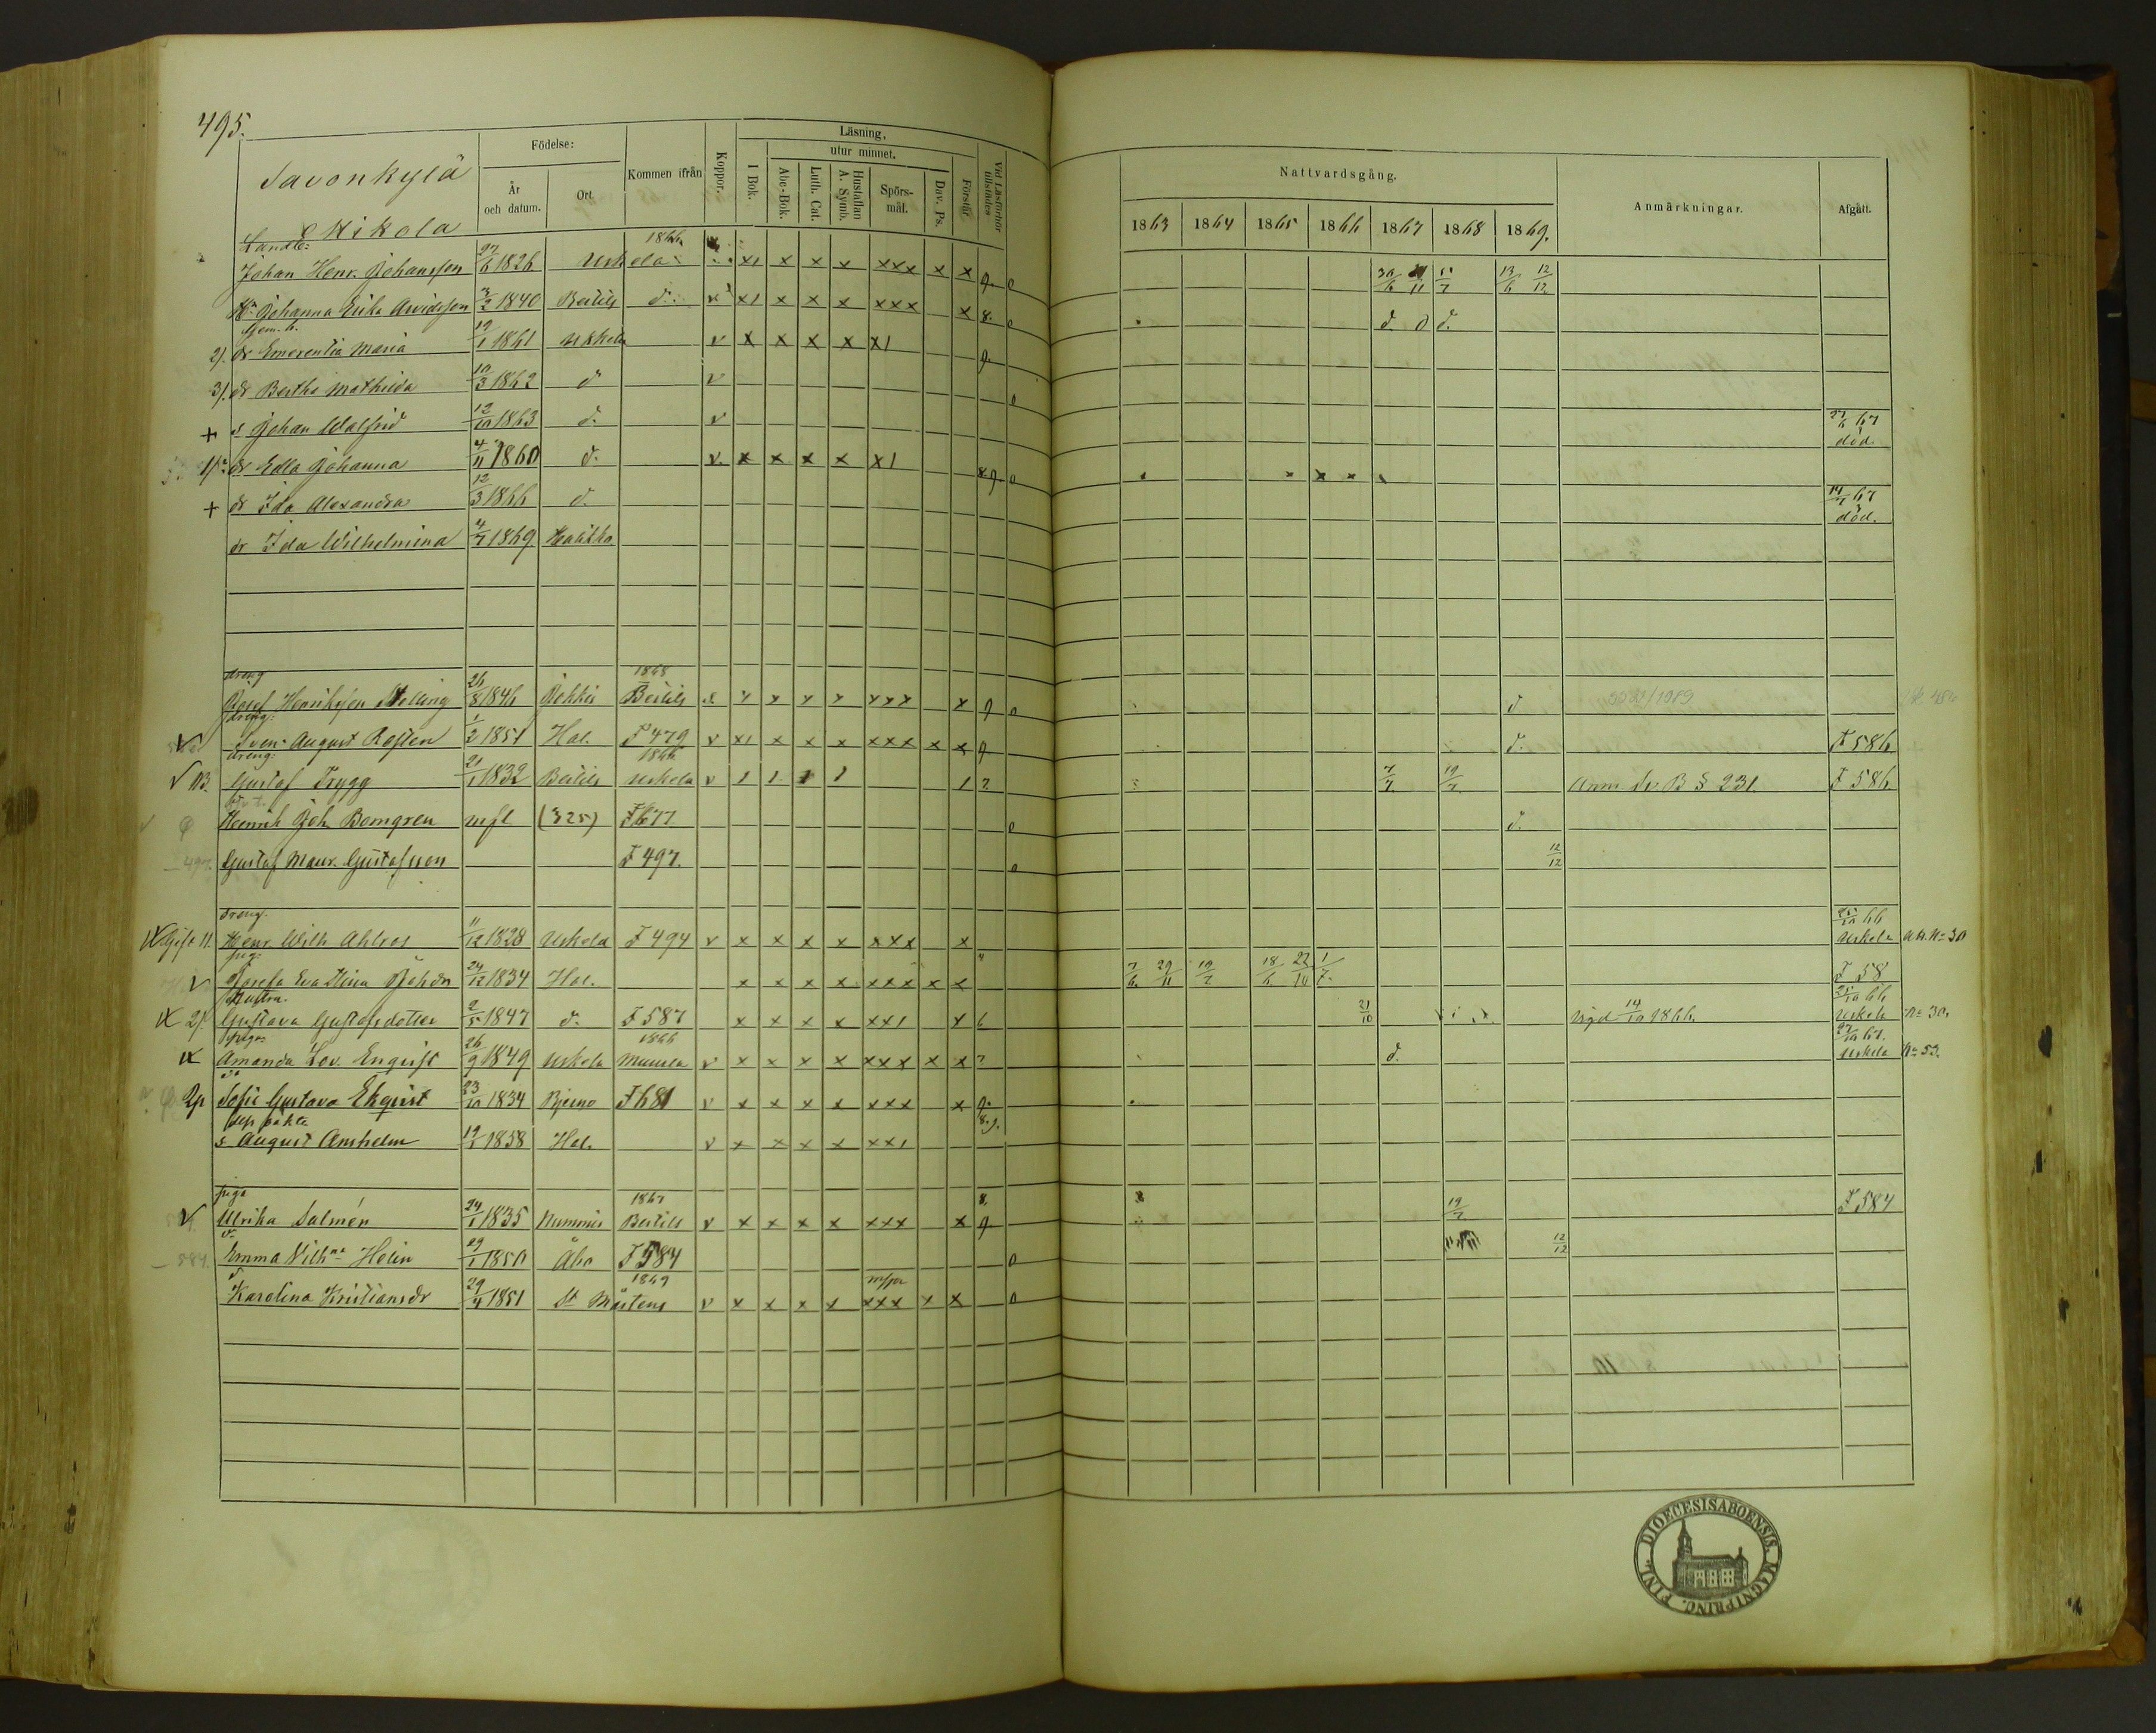 495.
Savonkylä
Mikola
Födelse:
År och datum.
Ort.
Kommen ifrån
Koppor.
Läsning.
I Bok.
utur minnet.
Abc-Bok.
Luth. Cat.
Hustaflan A. Symb.
Spörsmål.
Dav. Ps.
Förstår
Vid Läsförhör tillstädes
Nattvardsgång.
1863 1864 1865 1866 1867 1868 1869.
Anmärkningar.
Afgått.
Johan Henr. Johansson 27/6 1826 Uskela 1866 x1 x x x xxx x x 9. 5/7 13/6 12/12
Johanna Erika Arvidsson 3/2 1840 Bertils d. v x1 x x x xxx x 8. d d d.
2). dr Emerentia Maria 19/1 1861 Uskela v x x x x x1 9.
3). dr Bertha Mathilda 10/3 1862 d v
+ s Johan Walfrid 12/10 1863 d. v 67 död.
dr Edla Johanna 4/11 1860 d. v. x x x x x1 8.9.
+ dr Ida Alexandra 12/3 1866 d. 67 död.
dr Ida Wilhelmina 4/7 1869 Halikko
dreng
Josef Henriksson Melling 26/8 1846 Jokkis 1868 Bertils x x x x xxx x 9 d
dreng:
v Sven August Rosten 1/2 1851 Hal. F 479 v x1 x x x xxx x x 9 d. F 586
dreng:
v Gustaf Trygg 21/1 1832 Bertils 1866 Uskela v 1 1 1 1 1 7 7/7 19/7 Anm. B § 231. F 586
Henrik Joh. Bomgren (325) F 677 d.
497. Gustaf Maur. Gustafsson F 497. 12/12
dreng.
Henr. Wilh Ahlros 11/12 1828 Uskela F 494 v x x x x xxx x 25/10 66 Uskela No 30
v Josefa Eva Stina Johdr 24/12 1834 Hal. x x x x xxx x x 7/6 29/11 19/7 18/6 22/10 1/7. F 58
Hustru.
2). Gustava Gustafsdotter 2/5 1847 d. F 587 x x x x xx1 x 6 21/10 vigd 14/10 1866. 25/10 66 Uskela No 30.
Amanda Lov. Enqvist 26/9 1849 Uskela 1866 Muurla v x x x x xxx x x 7 d. 67. Uskela No 53.
Sofie Gustava Ekqvist 23/10 1834 Bjerno F 681 v x x x x xxx x 9.
dess oäkta
s August Anshelm 19/1 1858 Hal. v x x x x xx1 8.9.
piga
v Ulrika Salmén 24/1 1835 Nummis 1867 Bertils v x x x x xxx x 8. 9. 19/7 F 584
584. Emma Vilhna Helin 29/1 1850 Åbo F 584 12/12
Karolina Kristiansdr 29/4 1851 1869 St Mårtens v x x x x xxx x x
DIOECESIS ABOENSIS. MAGNI PRINC. FINL.